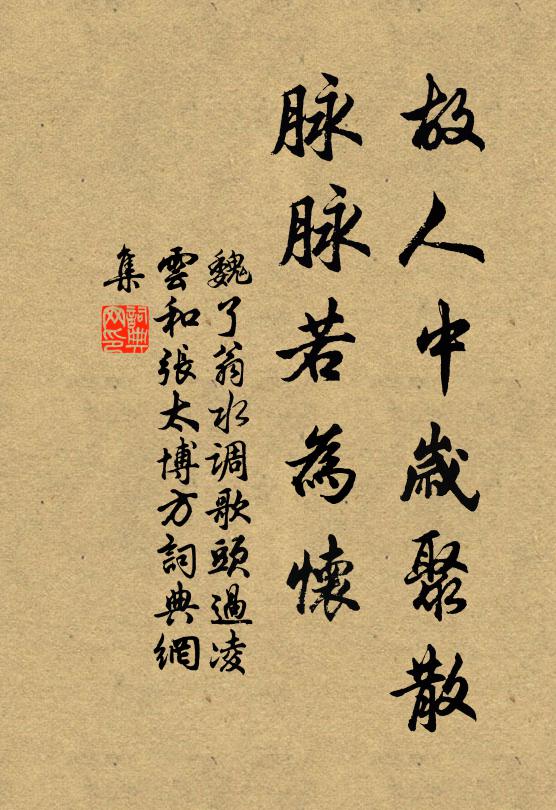 故人中歲聚散
脉脉若為懷
魏了翁水调歌頭過凌
雲和張太博方詞典網
集
詞典網印